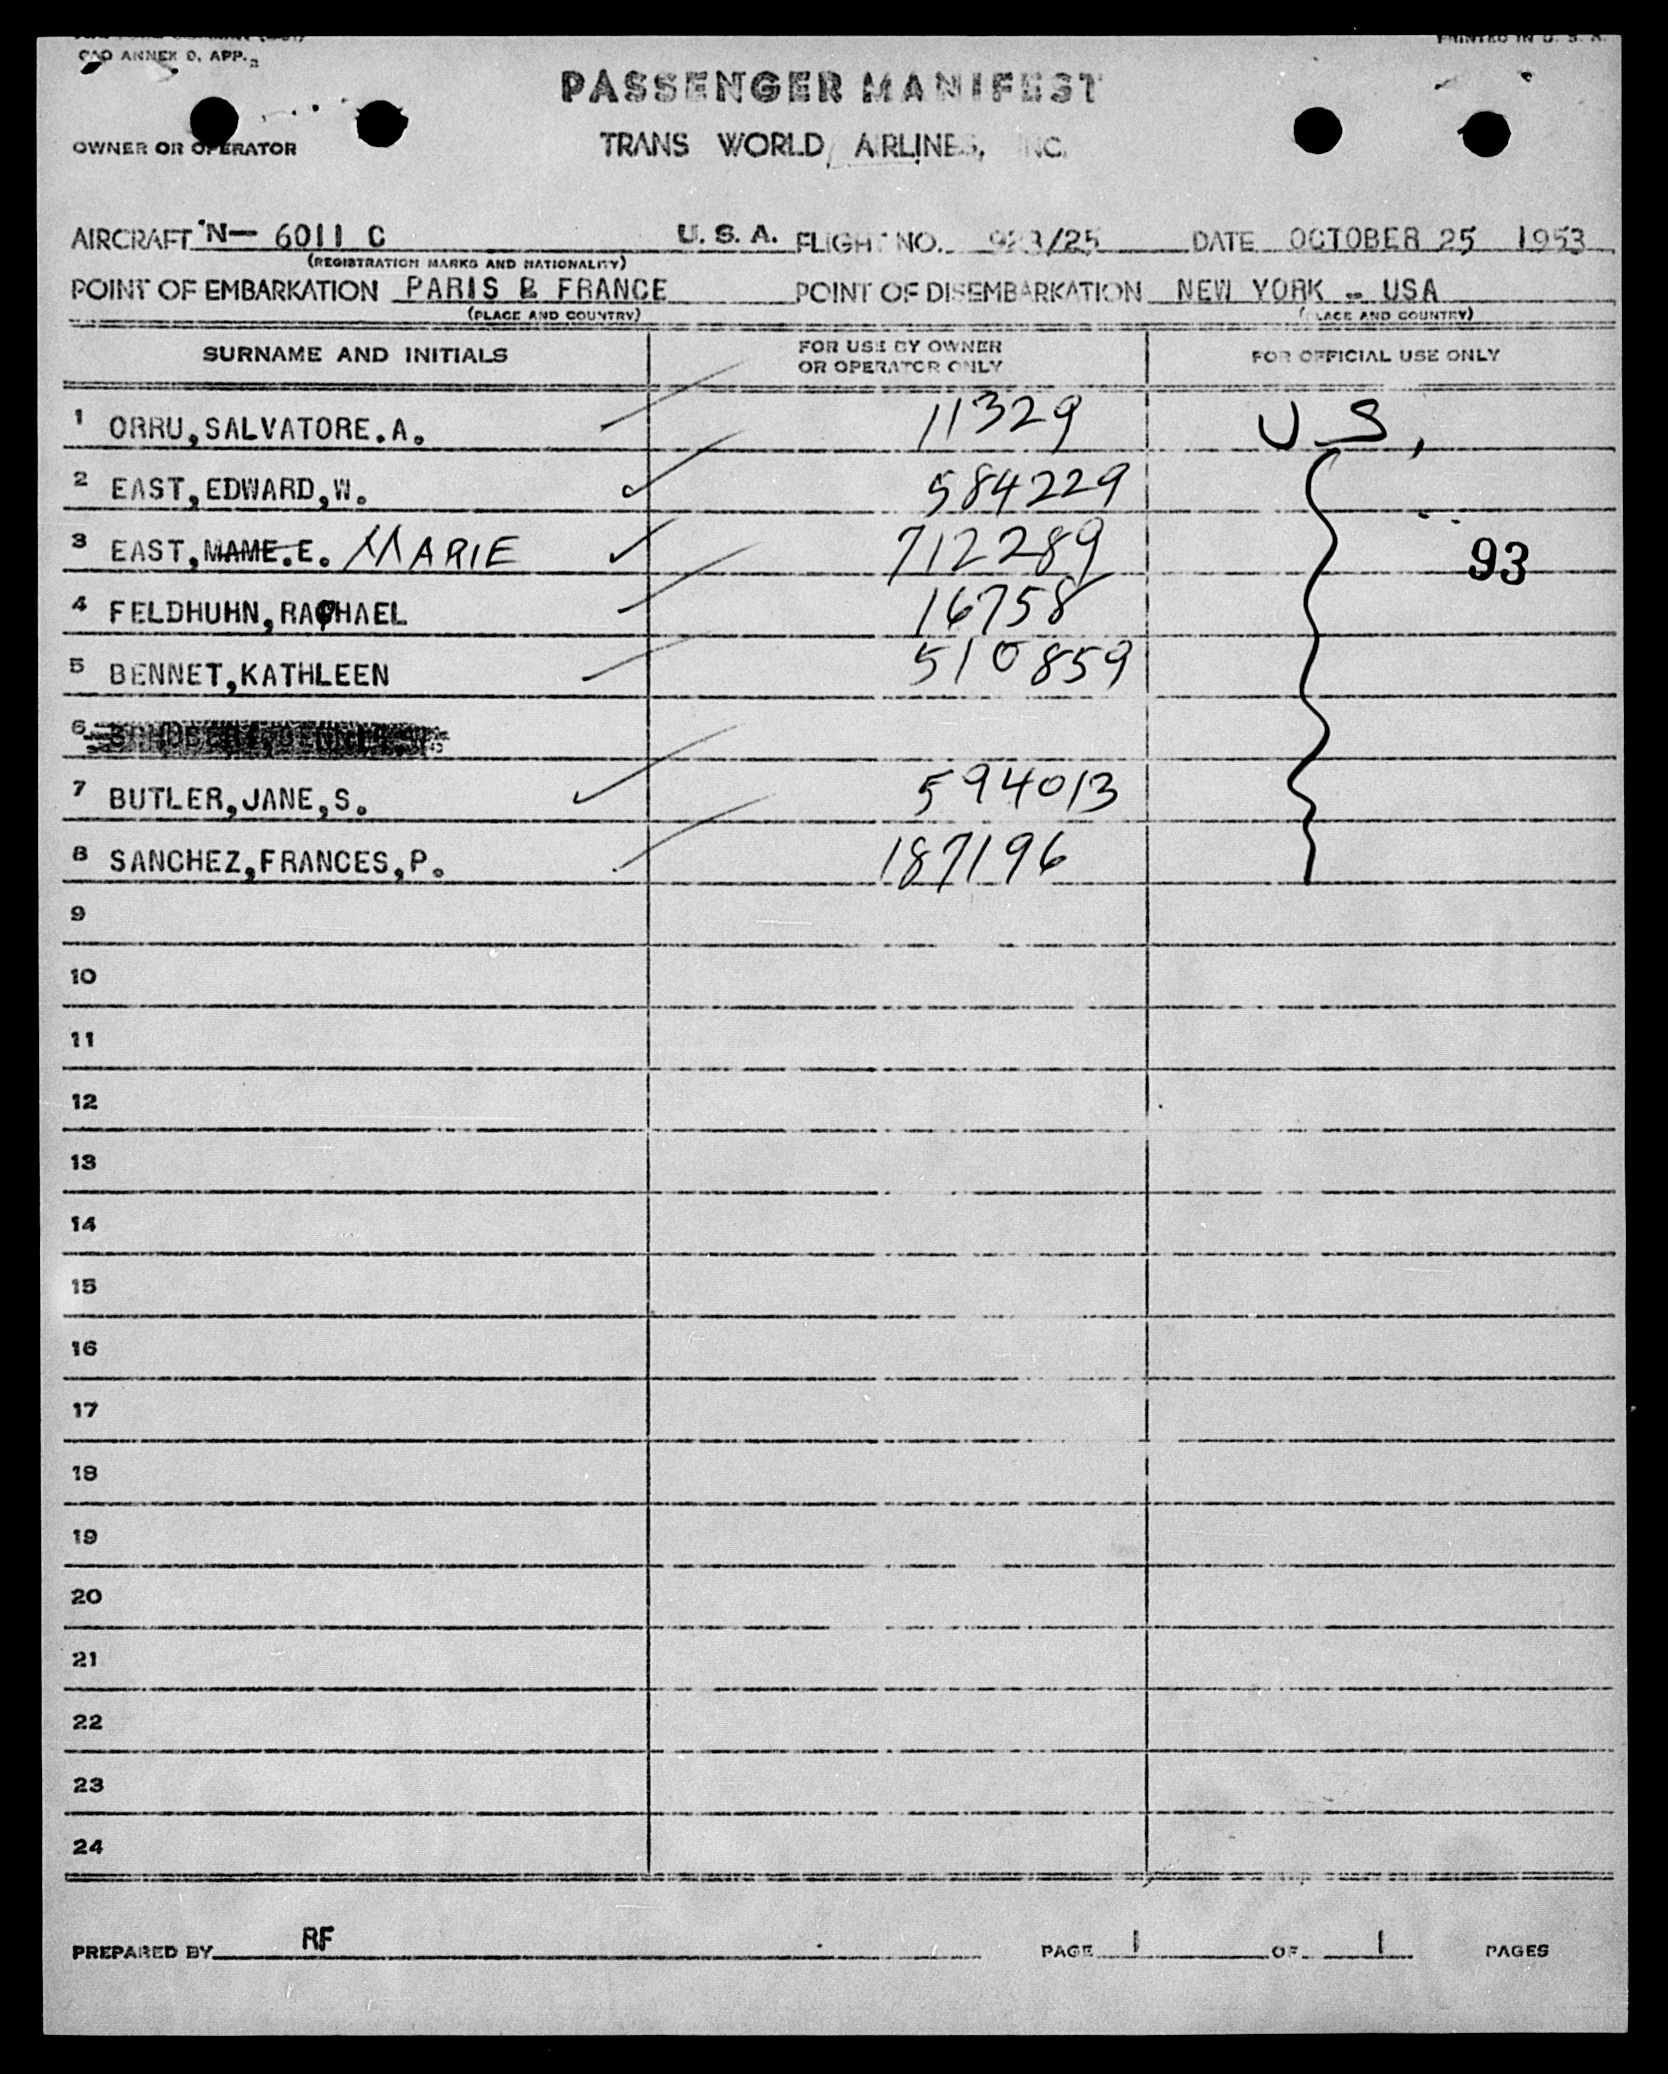 CAO ANNEX 9, APP.
PRINTED IN U. S. A.
PASSENGER MANIFEST
OWNER OR OPERATOR TRANS WORLD AIRLINES, INC.
AIRCRAFT N- 6011 C U. S. A. FLIGHT NO. /25 DATE OCTOBER 25 1953
(REGISTRATION MARKS AND NATIONALITY)
POINT OF EMBARKATION PARIS FRANCE POINT OF DISEMBARKATION NEW YORK - USA
(PLACE AND COUNTRY) (PLACE AND COUNTRY)
SURNAME AND INITIALS FOR USE BY OWNER OR OPERATOR ONLY FOR OFFICIAL USE ONLY
1 ORRU,SALVATORE.A. 11329 U S,
2 EAST,EDWARD,W. 584229
3 EAST,MAME.E. MARIE 712289 93
4 FELDHUHN,RAPHAEL 16758
5 BENNET,KATHLEEN 510859
6
7 BUTLER,JANE,S. 594013
8 SANCHEZ,FRANCES,P. 187196
9
10
11
12
13
14
15
16
17
18
19
20
21
22
23
24
PREPARED BY RF PAGE 1 OF 1 PAGES